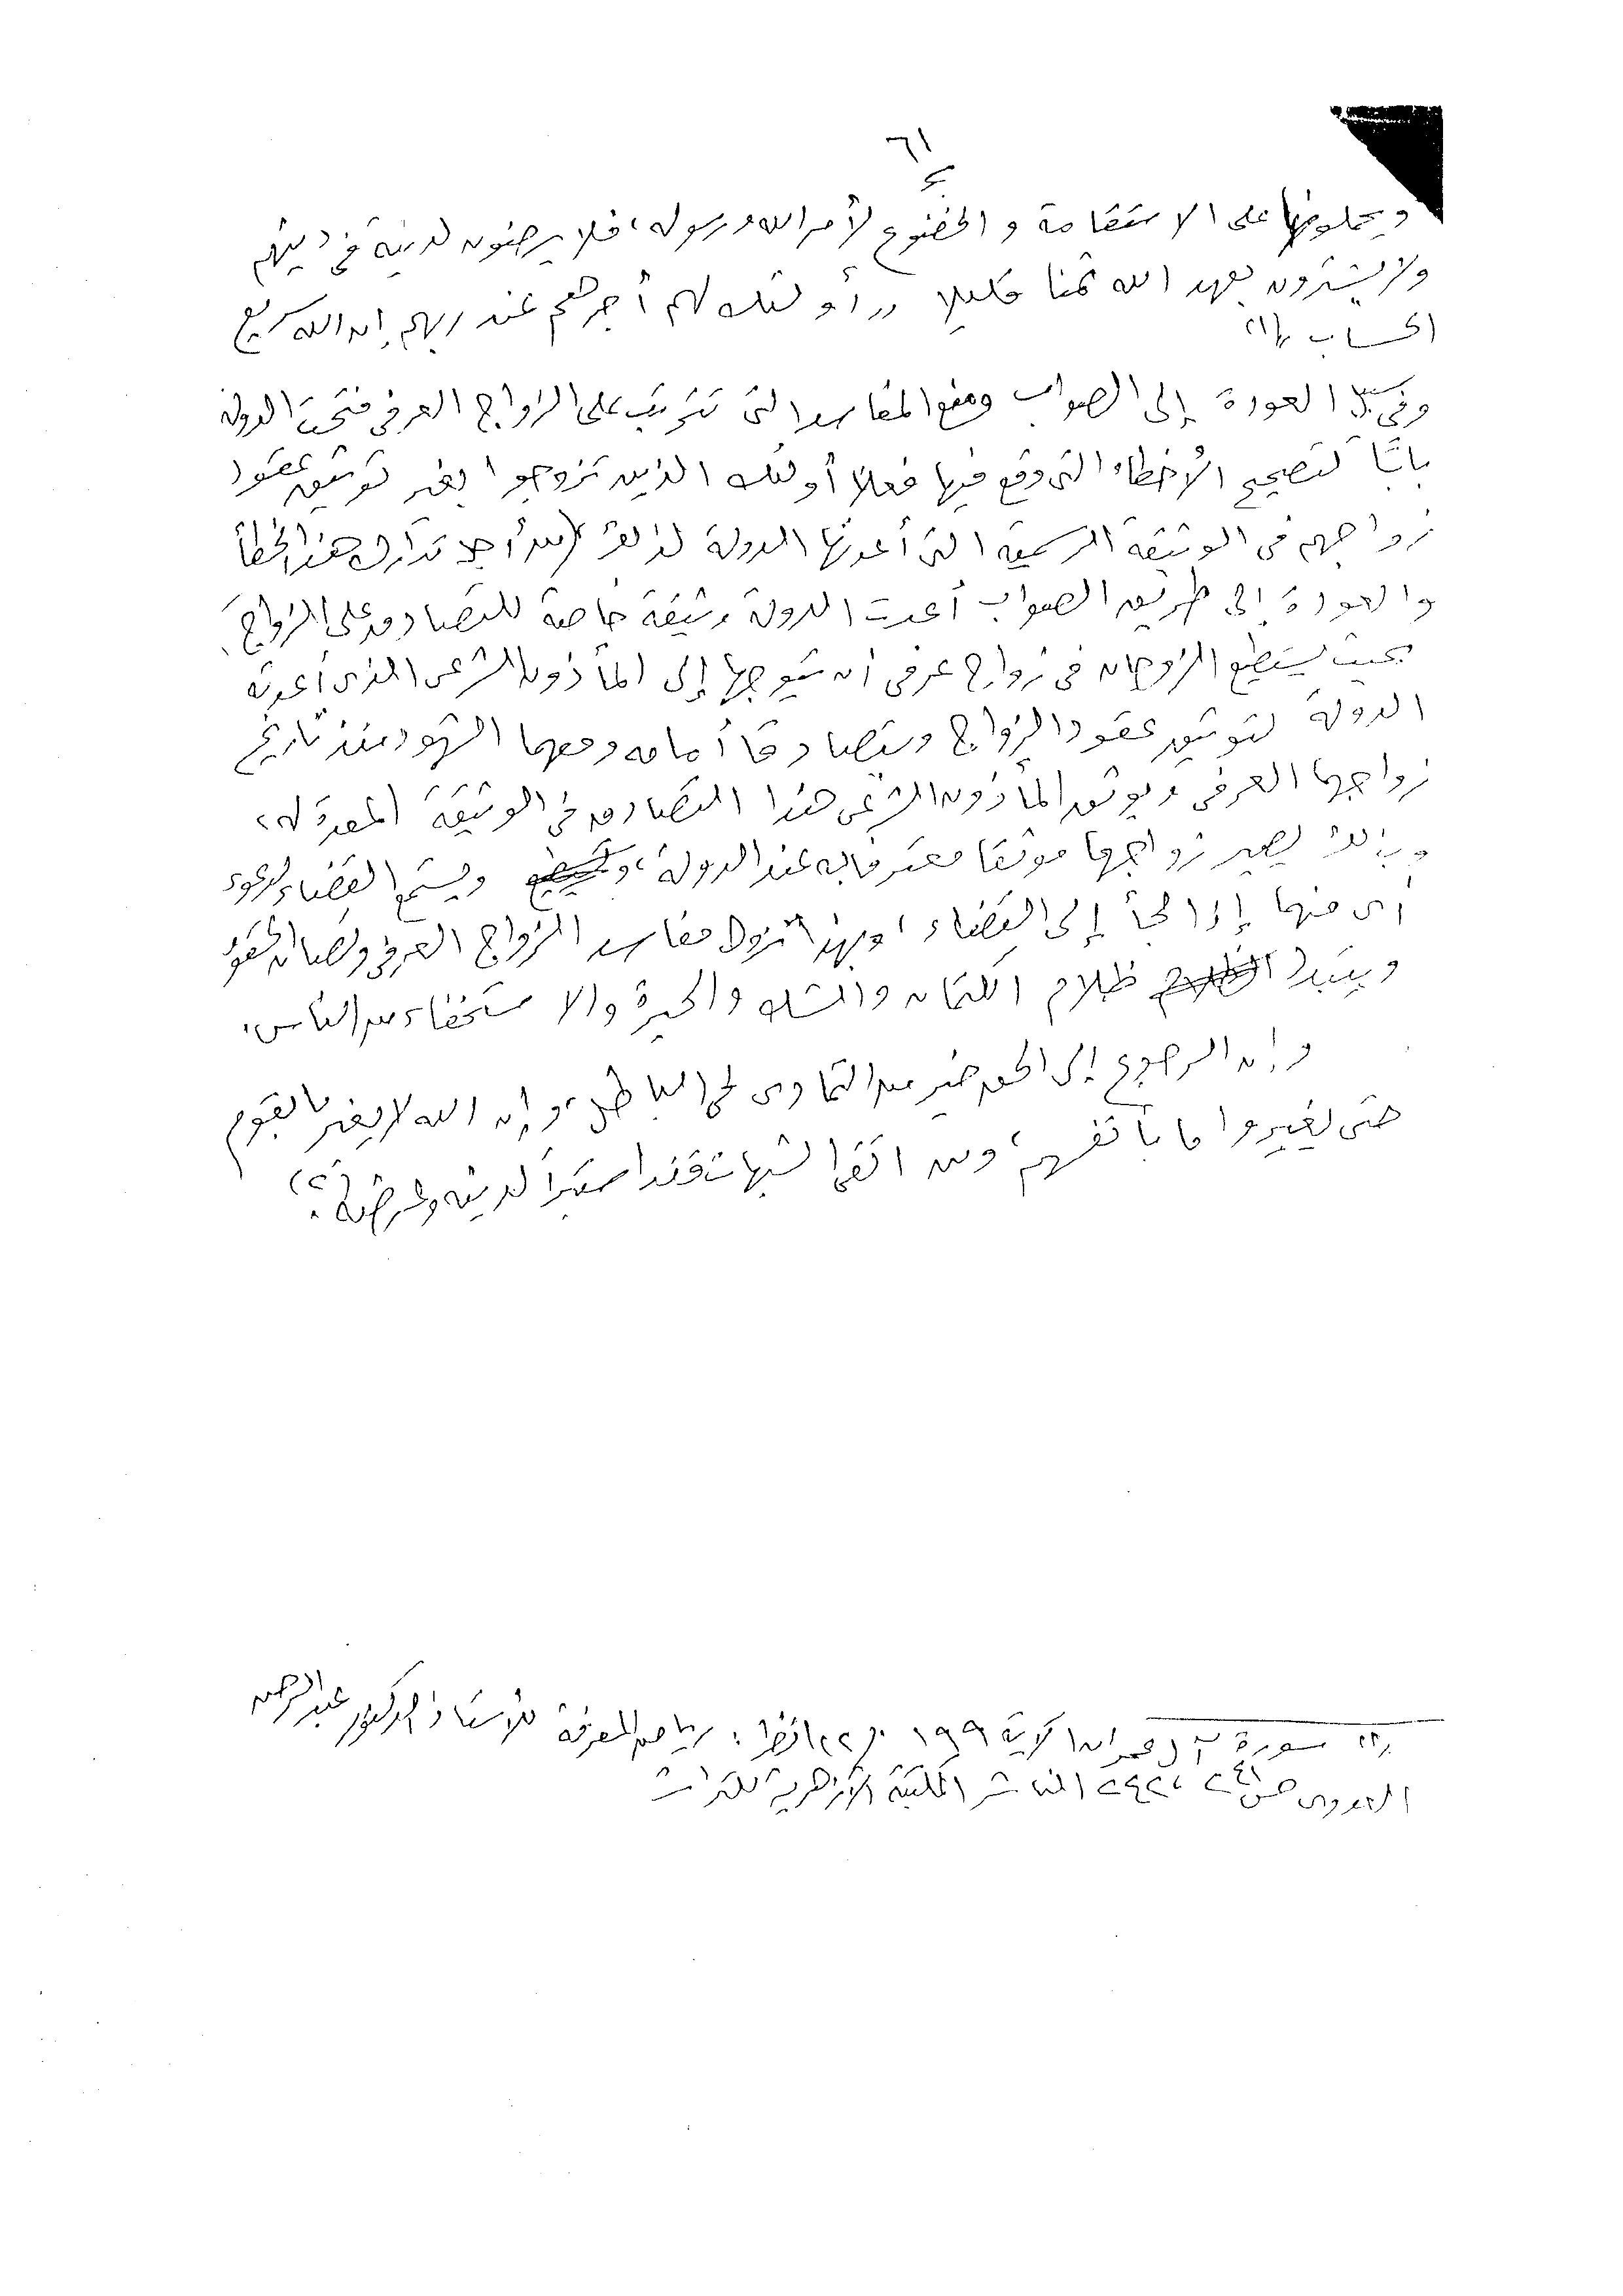 ٦١
ويحملونها على الاستقامة والخضوع لأمر الله ورسوله، فلا يرضون لدنية في دينهم
ولا يشترون بعهد الله ثمنا قليلا ,, أولئك لهم أجرهم عند ربهم إن الله سريع
الحساب ,, (١)
وفى سبيل العودة إلى الصواب ومنع المفاسد التى تترتب على الزواج العرفى فتحت الدولة
بابًا لتصحيح الأخطاء التى وقع فيها فعلا أولئك الذين تزوجوا بغير توثيق عقود
زواجهم فى الوثيقة الرسمية التى أعدتها الدولة لذلك من أجل تدارك هذا الخطأ
والعودة إلى طريق الصواب أعدت الدولة وثيقة خاصة للتصادق على الزواج
بحيث يستطيع الزوجان فى زواج عرفى أن يتوجها إلى المأذون الشرعى الذى أعدته
الدولة لتوثيق عقود الزواج ويتصادقا أمامه ومعهما الشهود منذ تاريخ
زواجهما العرفى ويوثق المأذون الشرعى هذا التصادق فى الوثيقة المعدة له،
وبذلك يصير زواجهما موثقا معترفا به عند الدولة، ويسمع القضاء لدعوى
أى منهما إذا لجأ إلى القضاء، وبهذا تزول مفاسد الزواج العرفى وتصان الحقوق
ويتبدد ظلام الكتمان والشك والحيرة والاستخفاء من الناس،
وإن الرجوع إلى الحق خير من التمادى فى الباطل، وإن الله لا يغير ما بقوم
حتى يغيروا ما بأنفسهم، ومن اتقى الشبهات فقد استبرأ لدينه وعرضه. (٢)
(١) سورة آل عمران الآية ١٩٩ . (٢) انظر: رياض المعرفة للأستاذ الدكتور عبد الرحمن
العدوى ص ٢٤١، ٢٤٢ الناشر المكتبة الأزهرية للتراث